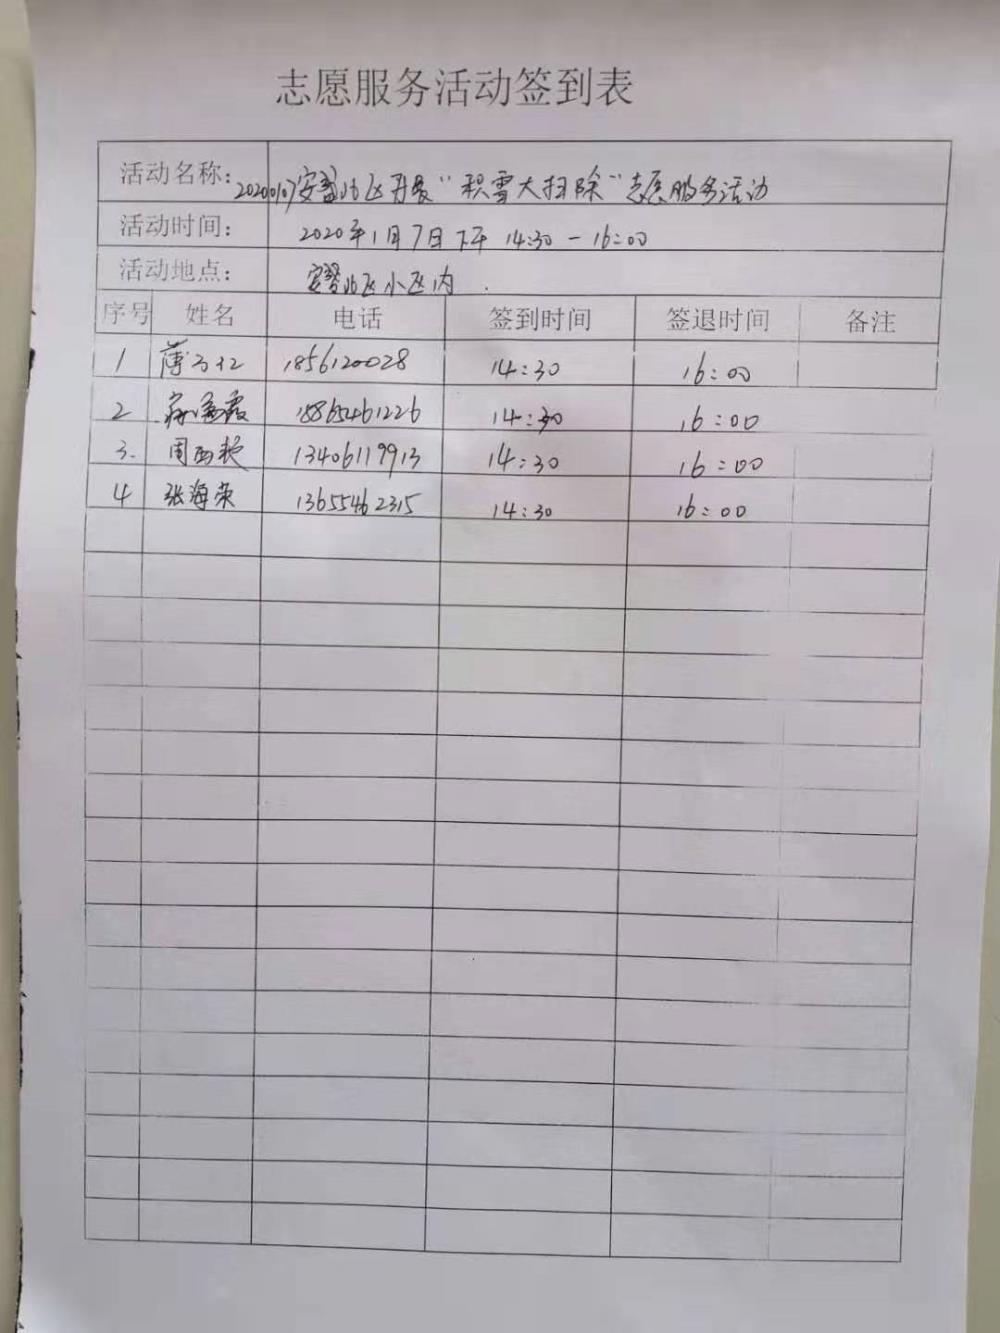 志愿服务活动签到表
活动名称: 20200107安盛北区开展“积雪大扫除”志愿服务活动
活动时间: 2020年1月7日下午 14:30-16:00
活动地点: 北区小区内.
序号 姓名 电话 签到时间 签退时间 备注
1 薄 1856120028 14:30 16:00
2 霞 18865461226 14:30 16:00
3. 周西 13406119913 14:30 16:00
4 张海荣 13655462315 14:30 16:00